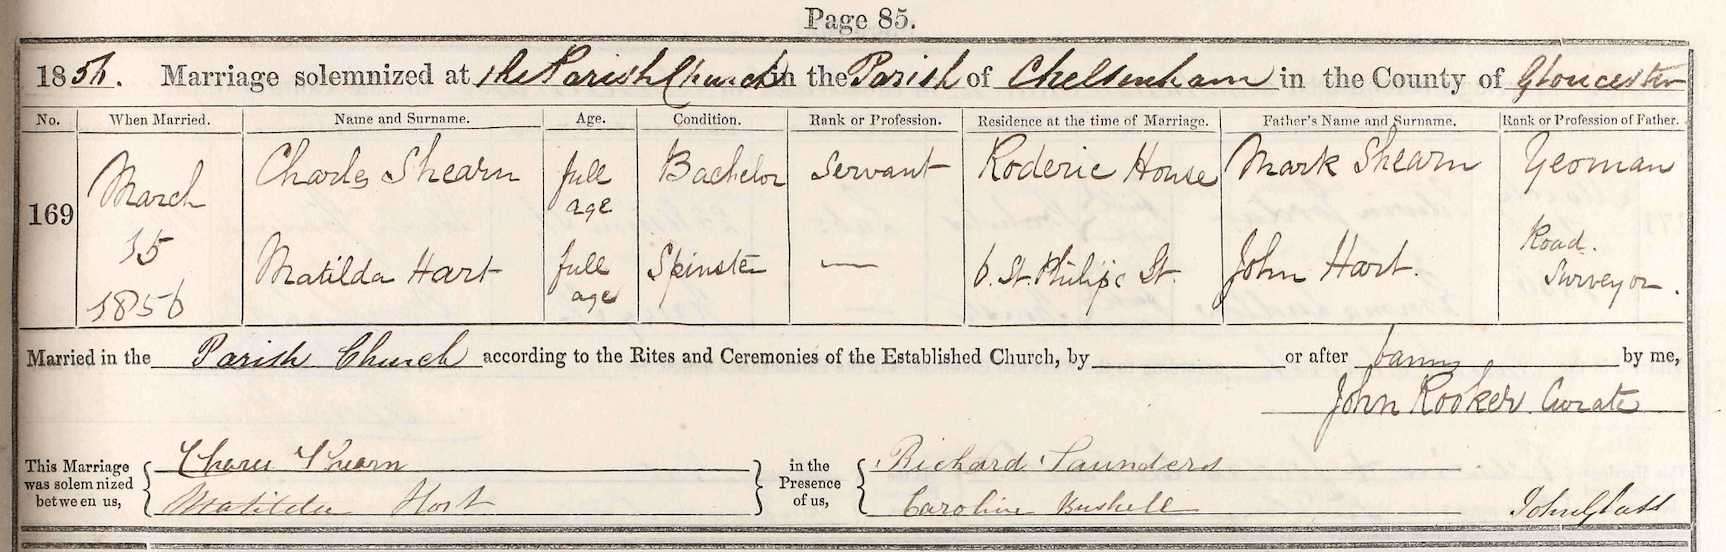 Page 85.
1856. Marriage solemnized at the Parish Church in the Parish of Cheltenham in the County of Gloucester
No. When Married. Name and Surname. Age. Condition. Rank or Profession. Residence at the time of Marriage. Father's Name and Surname. Rank or Profession of Father.
169 March 15 1856 Charles Shearn full age Bachelor Servant Roderic House Mark Shearn Yeoman
Matilda Hart full age Spinster — 6. St. Philips St. John Hart. Road. Surveyor.
Married in the Parish Church according to the Rites and Ceremonies of the Established Church, by or after banns by me,
John Rooker Curate
This Marriage was solemnized between us, Charles Shearn in the Presence of us, Richard Saunders
Matilda Hart Caroline Bushell John Glass